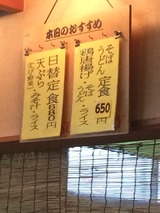 本日のおすすめ
そば
うどん 定食 650円
鶏唐揚げ
そば
うどん ライス
日替定食 680円
天ぷら
みそ汁・ライス